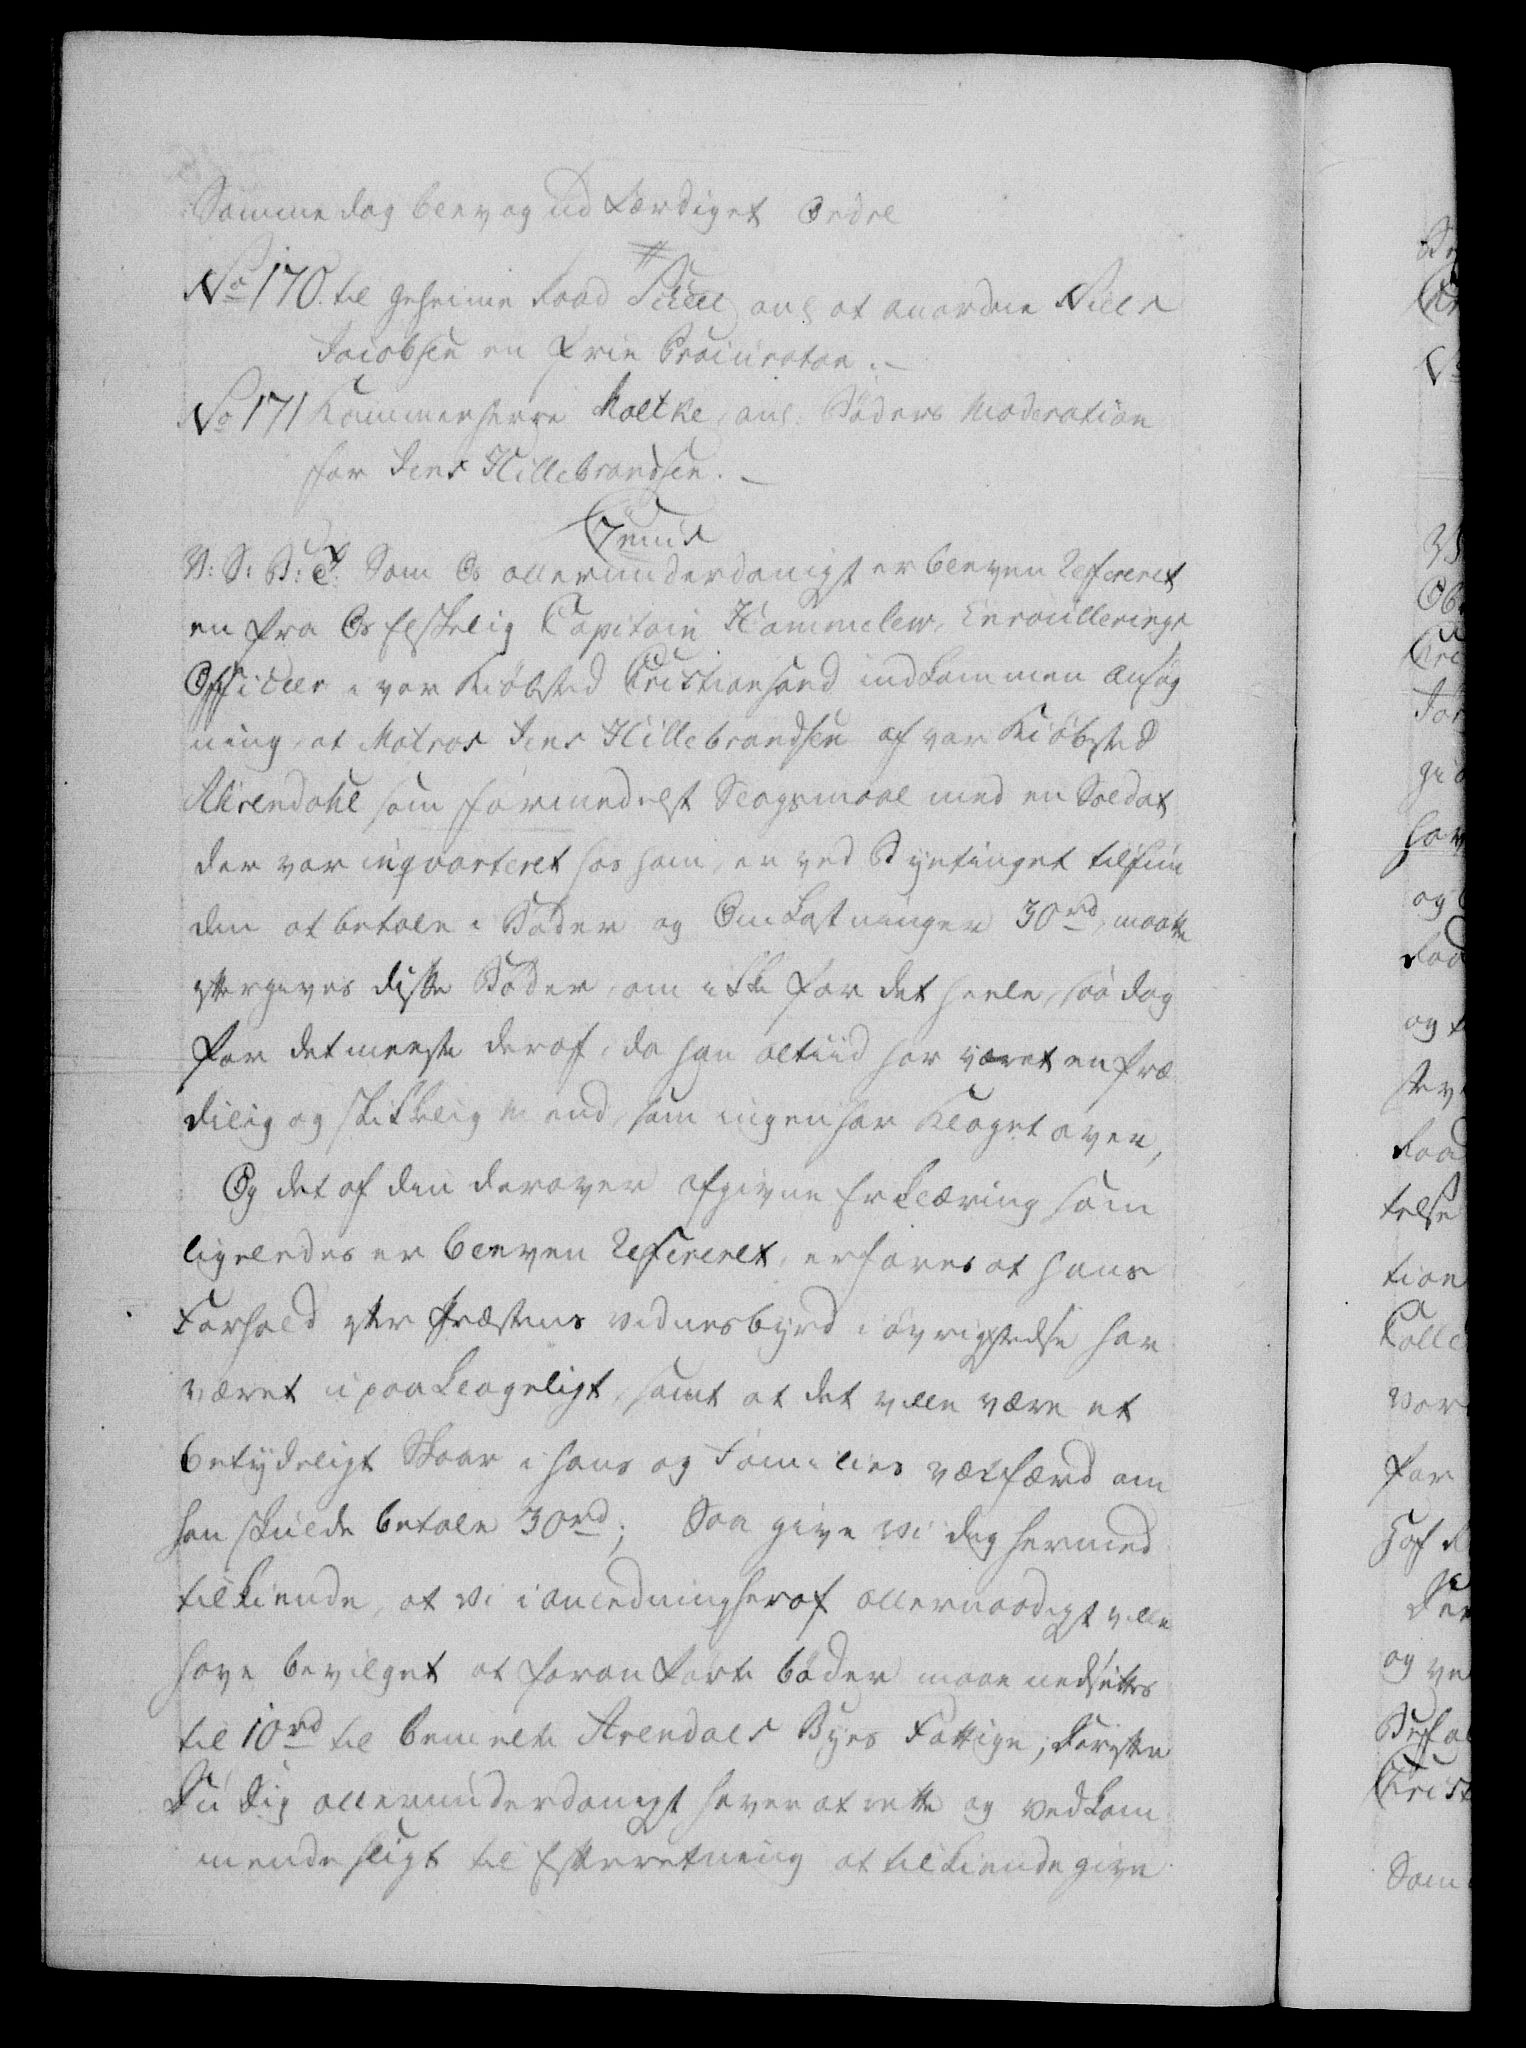 Samme dag blev og udfærdiget Ordre
No 170. til geheime Raad Juul, anl. at anordne Niels
Jacobsen en frie Procurator. –
No 171 Kammerherre Moltke, anl. Bøders Moderation
for Jens Hillebrandsen. –
C 7mus
V: S: B: T: Som Os allerunderdanigst er bleven Refereret
en fra Os Elskelig Capitain Hammelew, Enroullerings
Officeer i vor Kiøbsted Christiansand indkommen Ansøg
ning, at Matros Jens Hillebrandsen af vor Kiøbsted
Ahrendahl som formedelst Slagsmaal med en Soldat
der var inqvarteret hos ham, er ved Byetinget tilfun
den at betale i Bøder og Omkostninger 30rd, maatte
eftergives disse Bøder, om ikke for det heele, saa dog
for det meeste deraf, da han altiid har været en fre
delig og skikkelig Mand, som ingen har klaget over,
Og det af den derover afgivne Erklæring som
ligeledes er bleven Refereret, erfares at hans
Forhold efter Præstens vidnesbyrd i øvrigt har
været upaaklageligt, samt at det ville være et
betydeligt Skaar i hans og Families velfærd om
han skulde betale 30rd; Saa give Vi dig hermed
tilkiende, at Vi i anledning heraf allernaadigst ville
have bevilget at foranførte bøder maae nedsættes
til 10rd til bemelte Arendals Byes Fattige, derefter
Du dig allerunderdanigst haver at rette og vedkom
mende sligt til Efterretning at tilkiendegive